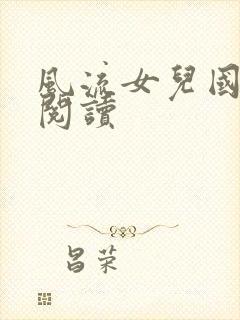 風流女兒國
閱讀
昌荣